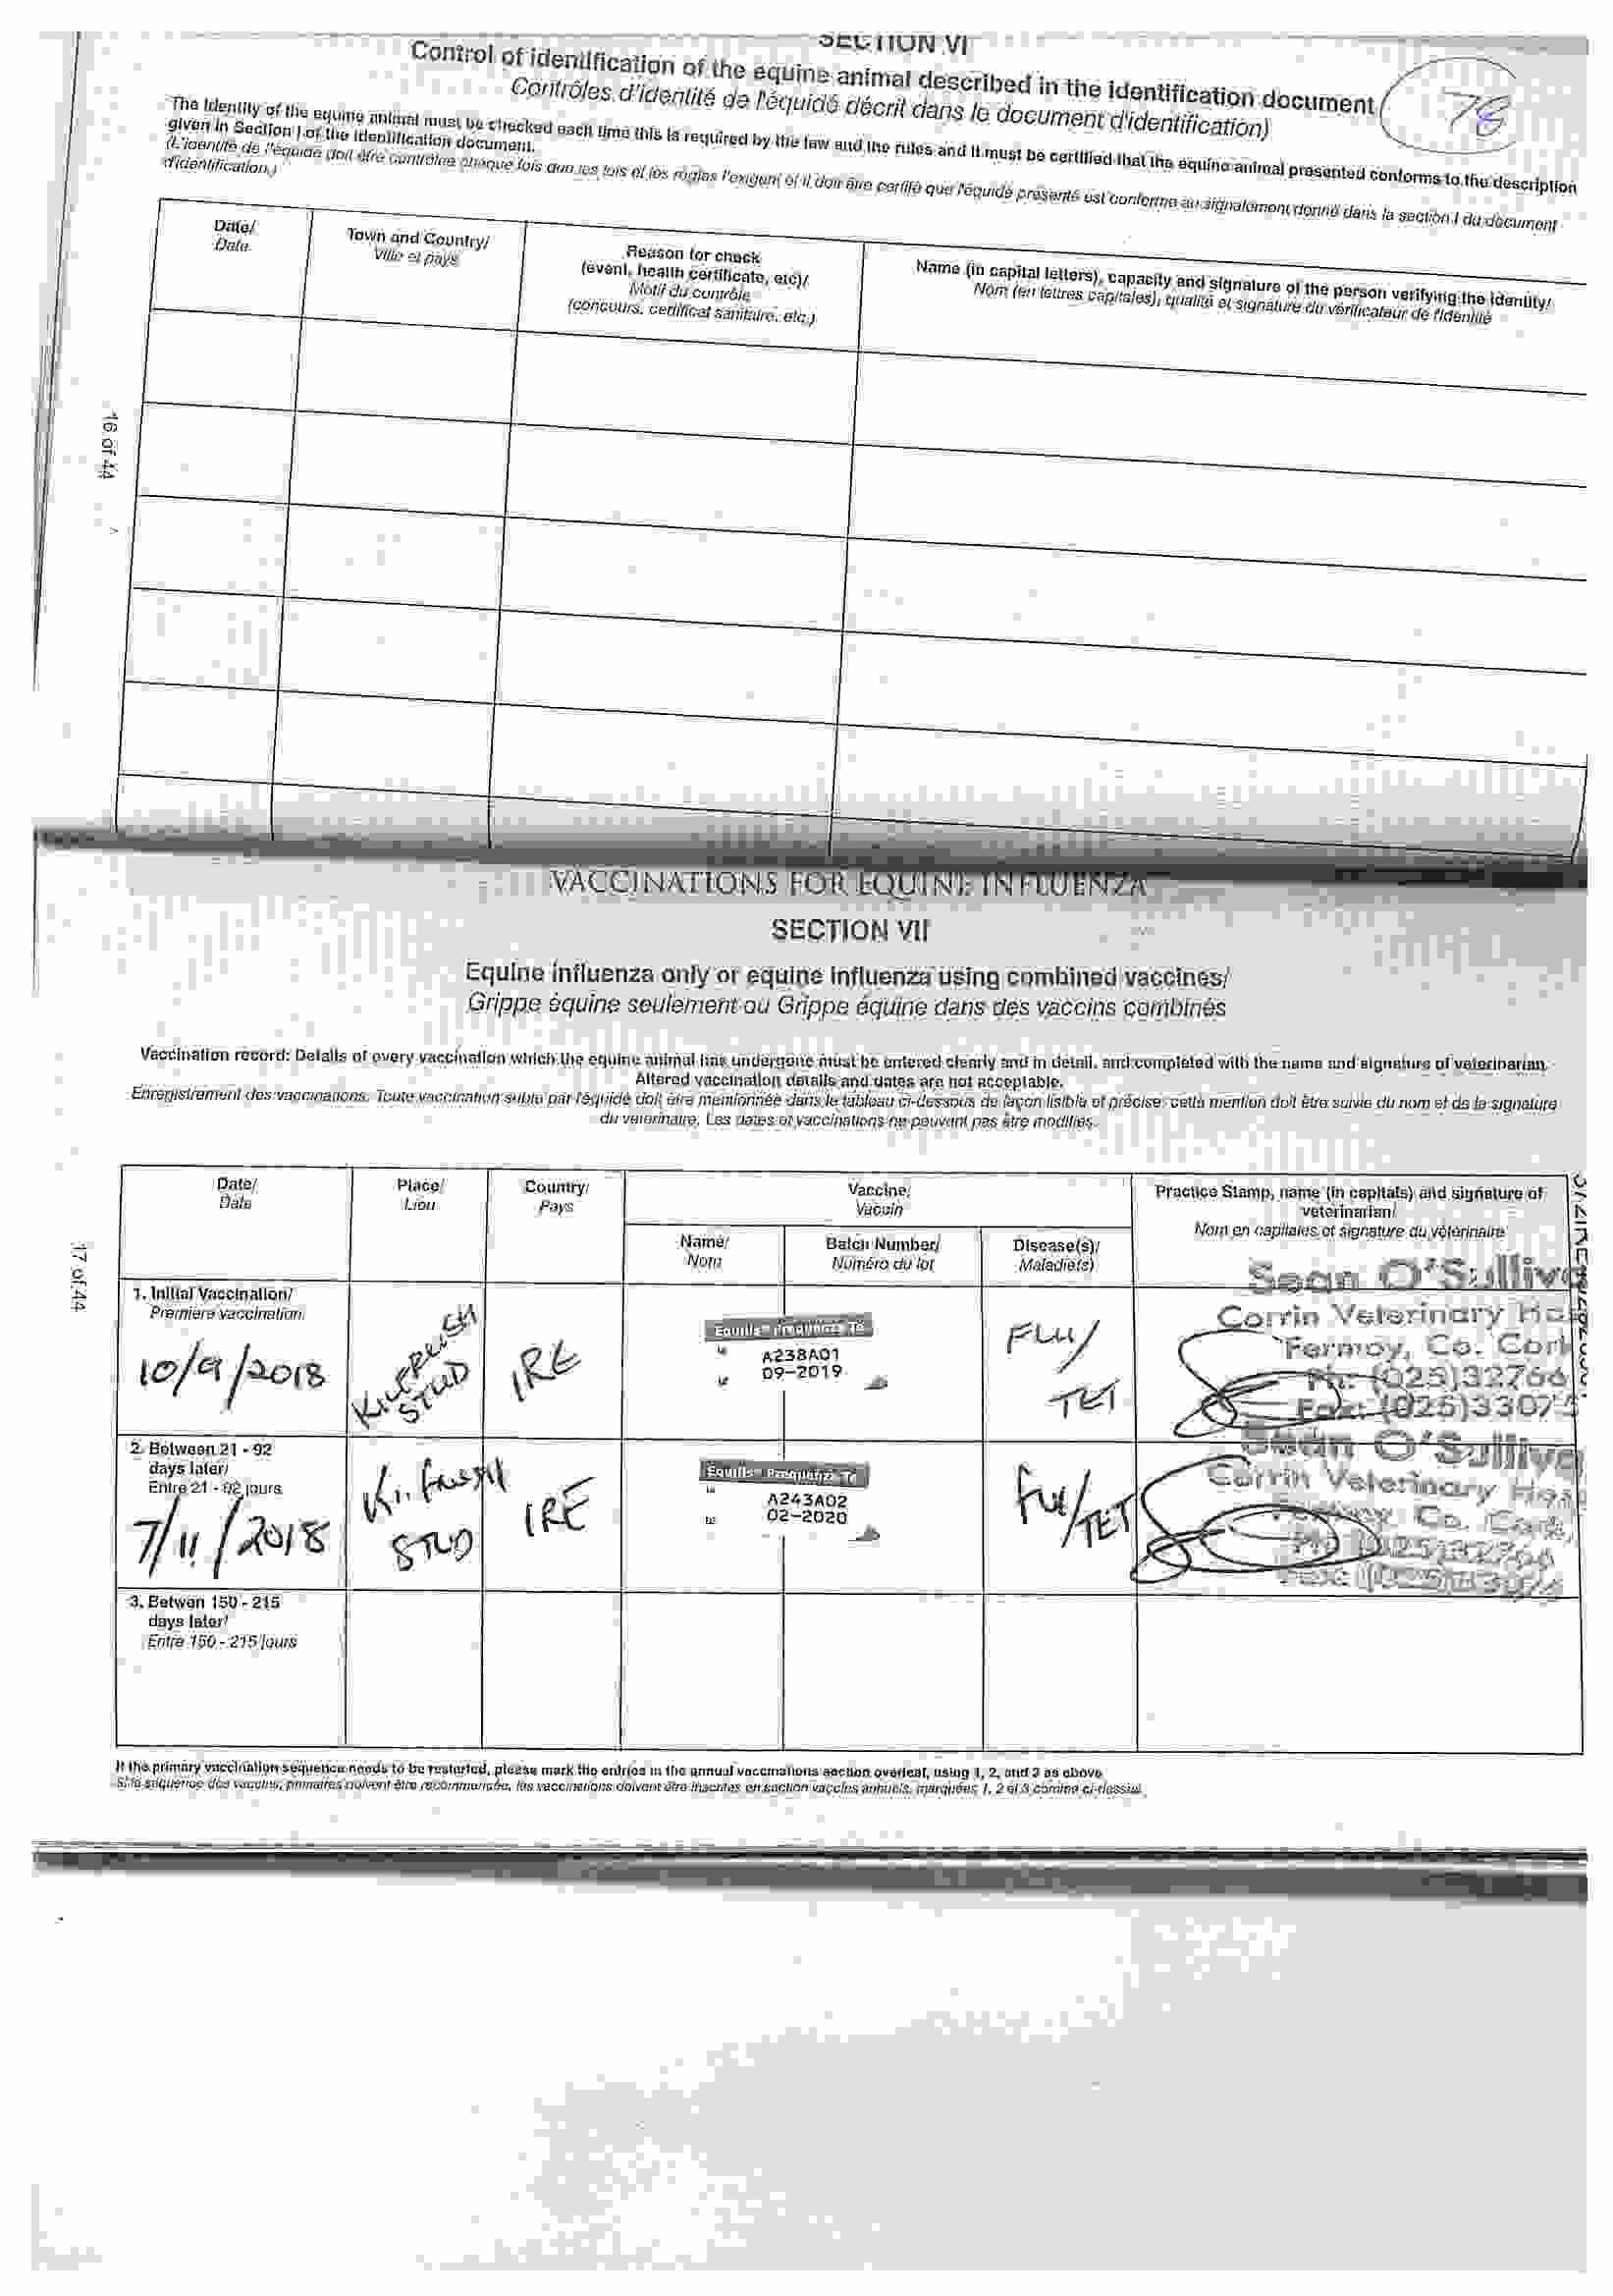 SECTION VI
Control of identification of the equine animal described in the identification document
Contrôles d'identité de l'équidé décrit dans le document d'identification)
78
The identity of the equine animal must be checked each time this is required by the law and the rules and it must be certified that the equine animal presented conforms to the description
given in Section I of the identification document.
(L'identité de l'équidé doit être contrôlée chaque fois que les lois et les règles l'exigent et il doit être certifié que l'équidé présenté est conforme au signalement donné dans la section I du document
d'identification.)
Date/
Date
Town and Country/
Ville et pays
Reason for check
(event, health certificate, etc)/
Motif du contrôle
(concours, certificat sanitaire, etc.)
Name (in capital letters), capacity and signature of the person verifying the identity/
Nom (en lettres capitales), qualité et signature du vérificateur de l'identité
16 of 44
VACCINATIONS FOR EQUINE INFLUENZA
SECTION VII
Equine influenza only or equine influenza using combined vaccines/
Grippe équine seulement ou Grippe équine dans des vaccins combinés
Vaccination record: Details of every vaccination which the equine animal has undergone must be entered clearly and in detail, and completed with the name and signature of veterinarian.
Altered vaccination details and dates are not acceptable.
Enregistrement des vaccinations: Toute vaccination subie par l'équidé doit être mentionnée dans le tableau ci-dessous de façon lisible et précise: cette mention doit être suivie du nom et de la signature
du veterinaire. Les dates et vaccinations ne peuvent pas être modifiés.
17 of 44
Date/
Date
Place/
Lieu
Country/
Pays
Vaccine/
Vaccin
Name/
Nom
Batch Number/
Numéro du lot
Disease(s)/
Maladie(s)
Practice Stamp, name (in capitals) and signature of
veterinarian/
Nom en capitales et signature du vétérinaire
1. Initial Vaccination/
Premiere vaccination
10/9/2018
KILFRUSH
STUD
IRE
Equilis Prequenza Te
A238A01
09-2019
FLU/
TET
Sean O'Sulliv
Corrin Veterinary Ho
Fermoy, Co. Cor
Ph: (025)32766
Fax: (025)33075
2. Between 21 - 92
days later/
Entre 21 - 92 jours
7/11/2018
Kilfrush
STUD
IRE
Equilis Prequenza Te
A243A02
02-2020
FLU/TET
Sean O'Sulliv
Corrin Veterinary Hosp
Fermoy, Co. Cork
Ph: (025)32766
3. Betwen 150 - 215
days later/
Entre 150 - 215 jours
If the primary vaccination sequence needs to be restarted, please mark the entries in the annual vaccinations section overleaf, using 1, 2, and 3 as above
Si la séquence des vaccins, primaires doivent être recommencée, les vaccinations doivent être inscrites en section vaccins annuels, marquées 1, 2 et 3 comme ci-dessus